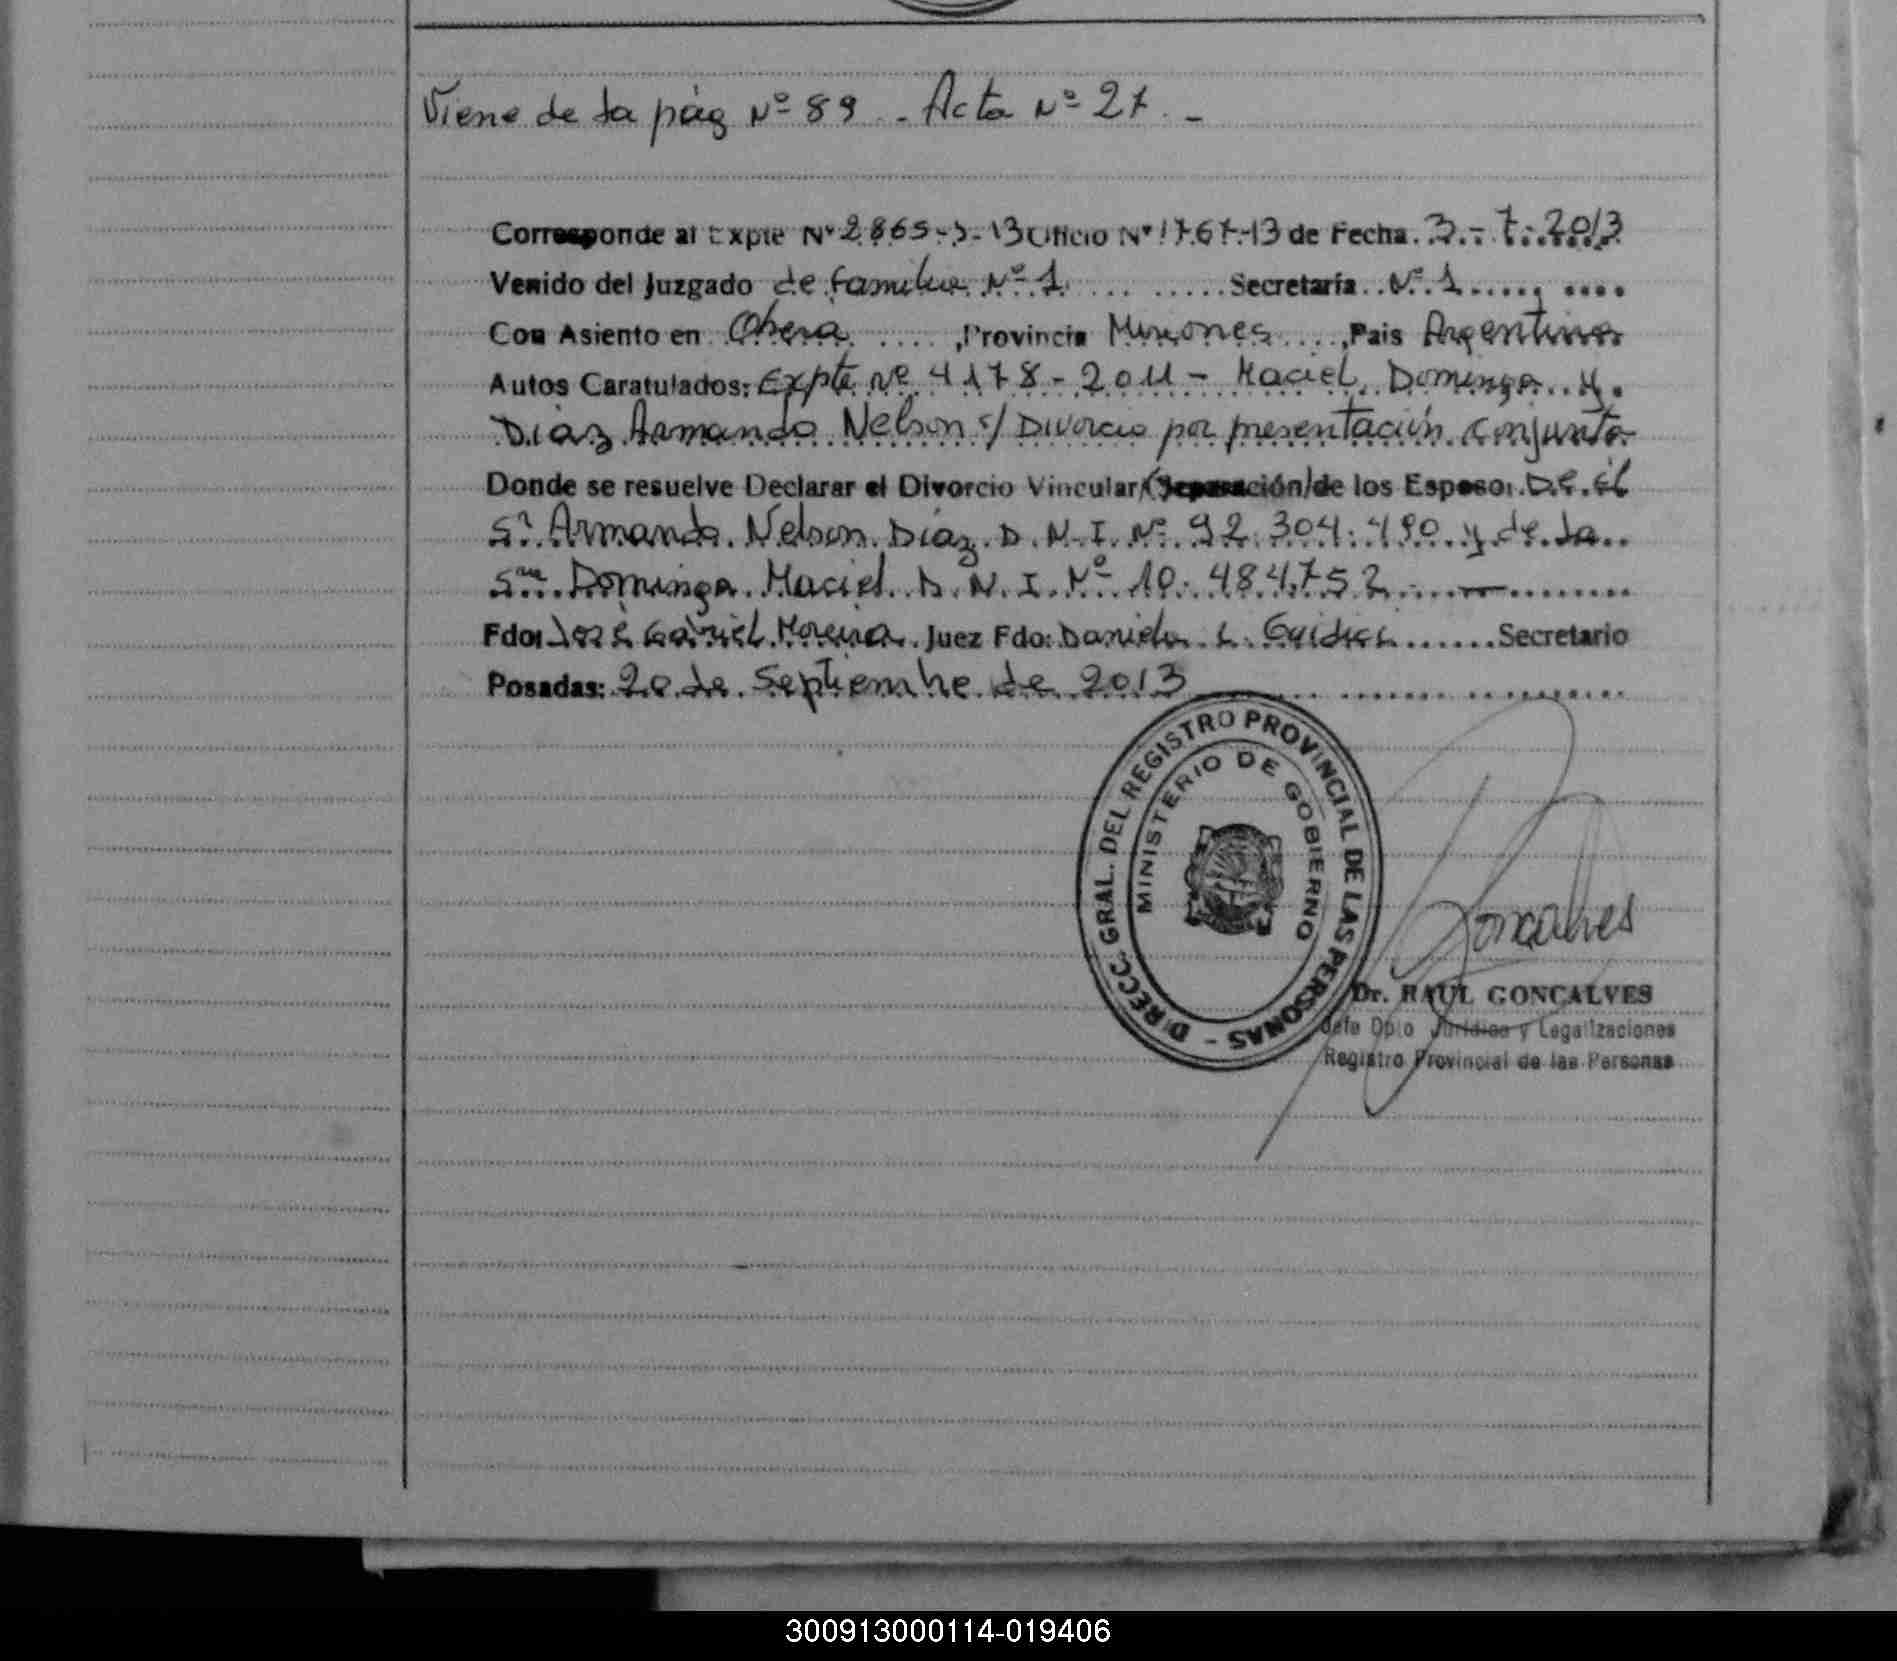 Viene de la pág Nº 89 - Acta Nº 27. -
Corresponde al Expte Nº 2865-J-13 Oficio Nº 1767-13 de Fecha 3-7-2013
Venido del Juzgado de familia Nº 1 Secretaría Nº 1
Con Asiento en Obera, Provincia Misiones, Pais Argentina
Autos Caratulados: Expte Nº 4178-2011 - Maciel, Dominga y
Díaz Armando Nelson s/ Divorcio por presentación conjunta
Donde se resuelve Declarar el Divorcio Vincular/(Separación/de los Esposo: De el
Sr Armando Nelson Díaz D.N.I. Nº 92.304.490 y de la
Sra Dominga Maciel D.N.I. Nº 10.484.752
Fdo: José Gabriel Moreira Juez Fdo: Daniela L. Guidici Secretario
Posadas: 20 de Septiembre de 2013
DIRECC. GRAL. DEL REGISTRO PROVINCIAL DE LAS PERSONAS -
MINISTERIO DE GOBIERNO
Goncalves
Dr. RAUL GONCALVES
Jefe Dpto Jurídico y Legalizaciones
Registro Provincial de las Personas
300913000114-019406